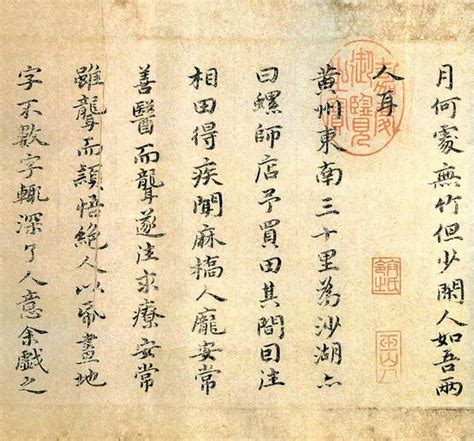 月何處無竹但少閑人如吾兩
人耳
黃州東南三十里為沙湖亦
曰螺師店予買田其間因往
相田得疾聞麻橋人龐安常
善醫而聾遂往求療安常
雖聾而穎悟絕人以帋畫地
字不數字輒深了人意余戲之
嘉慶御覽之寶